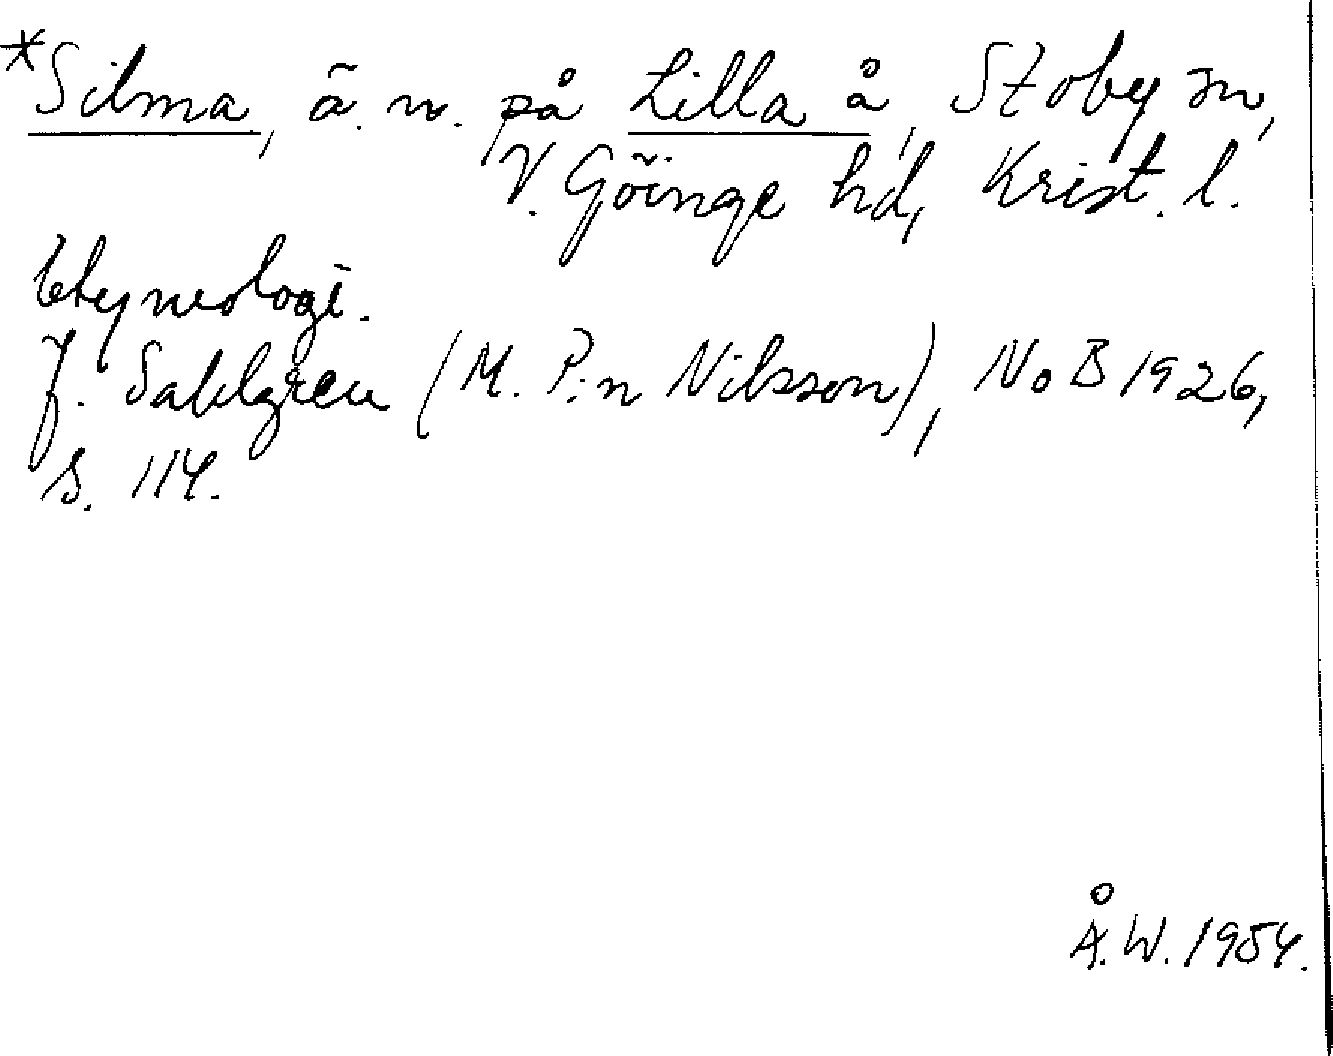 *Silma, ä. n. på Lilla å, Stoby sn,
V. Göinge hd, Krist. l.
Etymologi.
J. Sahlgren (M. P:n Nilsson), NoB 1926,
s. 114.
Å. W. 1954.